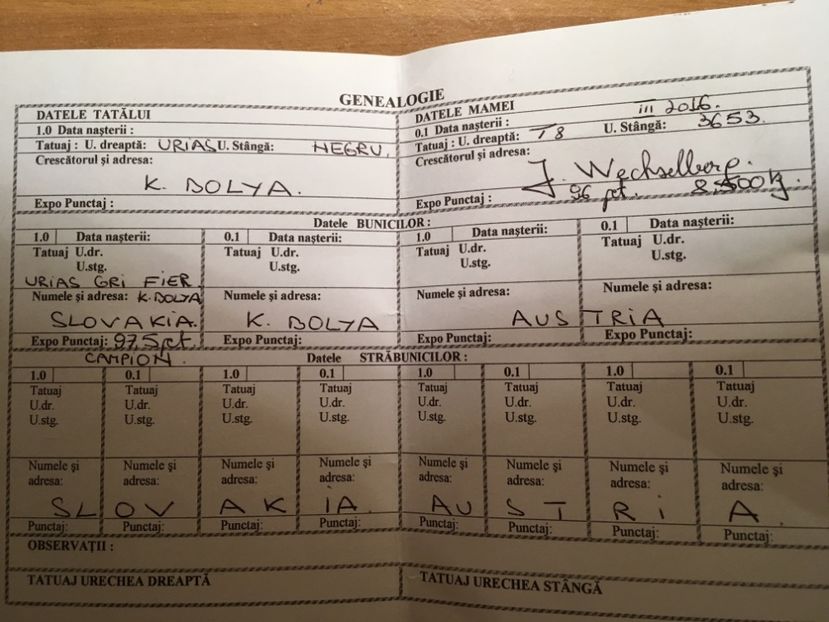 GENEALOGIE
DATELE TATĂLUI
1.0 Data nașterii :
Tatuaj : U. dreaptă: URIAS U. Stângă: NEGRU.
Crescătorul și adresa:
K. BOLYA.
Expo Punctaj :
DATELE MAMEI
0.1 Data nașterii : III 2016.
Tatuaj : U. dreaptă: T 8 U. Stângă: 3653.
Crescătorul și adresa:
J. Wechselberg.
Expo Punctaj : 96 pct. 8.500 kg.
Datele BUNICILOR :
1.0 Data nașterii: 0.1 Data nașterii: 1.0 Data nașterii: 0.1 Data nașterii:
Tatuaj U.dr. Tatuaj U.dr. Tatuaj U.dr. Tatuaj U.dr.
U.stg. U.stg. U.stg. U.stg.
URIAS GRI FIER.
Numele și adresa: K. BOLYA Numele și adresa: Numele și adresa: Numele și adresa:
SLOVAKIA. K. BOLYA AUSTRIA
Expo Punctaj: 97,5 pct. Expo Punctaj: Expo Punctaj: Expo Punctaj:
CAMPION. Datele STRĂBUNICILOR :
1.0 0.1 1.0 0.1 1.0 0.1 1.0 0.1
Tatuaj Tatuaj Tatuaj Tatuaj Tatuaj Tatuaj Tatuaj Tatuaj
U.dr. U.dr. U.dr. U.dr. U.dr. U.dr. U.dr. U.dr.
U.stg. U.stg. U.stg. U.stg. U.stg. U.stg. U.stg. U.stg.
Numele și Numele și Numele și Numele și Numele și Numele și Numele și Numele și
adresa: adresa: adresa: adresa: adresa: adresa: adresa: adresa:
SLOVAKIA. AUSTRIA
Punctaj: Punctaj: Punctaj: Punctaj: Punctaj: Punctaj: Punctaj: Punctaj:
OBSERVAȚII :
TATUAJ URECHEA DREAPTĂ TATUAJ URECHEA STÂNGĂ